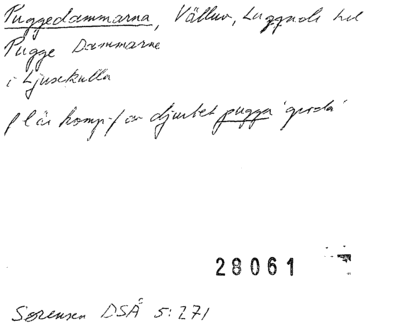 Puggedammarna, Välluv, Luggude hd
Pugge Dammarne
i Ljusekulla
f l är komp. av djurbet pugga 'groda'
28061
Sørensen DSÅ 5:271